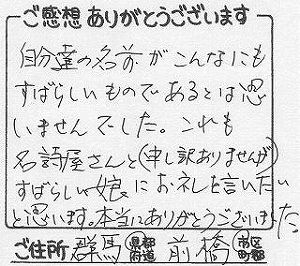 ご感想ありがとうございます
自分達の名前がこんなにも
すばらしいものであるとは思
いませんでした。これも
名詩屋さんと(申し訳ありませんが)
すばらしい娘にお礼を言いたい
と思います。本当にありがとうございました
ご住所 群馬 都道府県 前橋 市区町郡